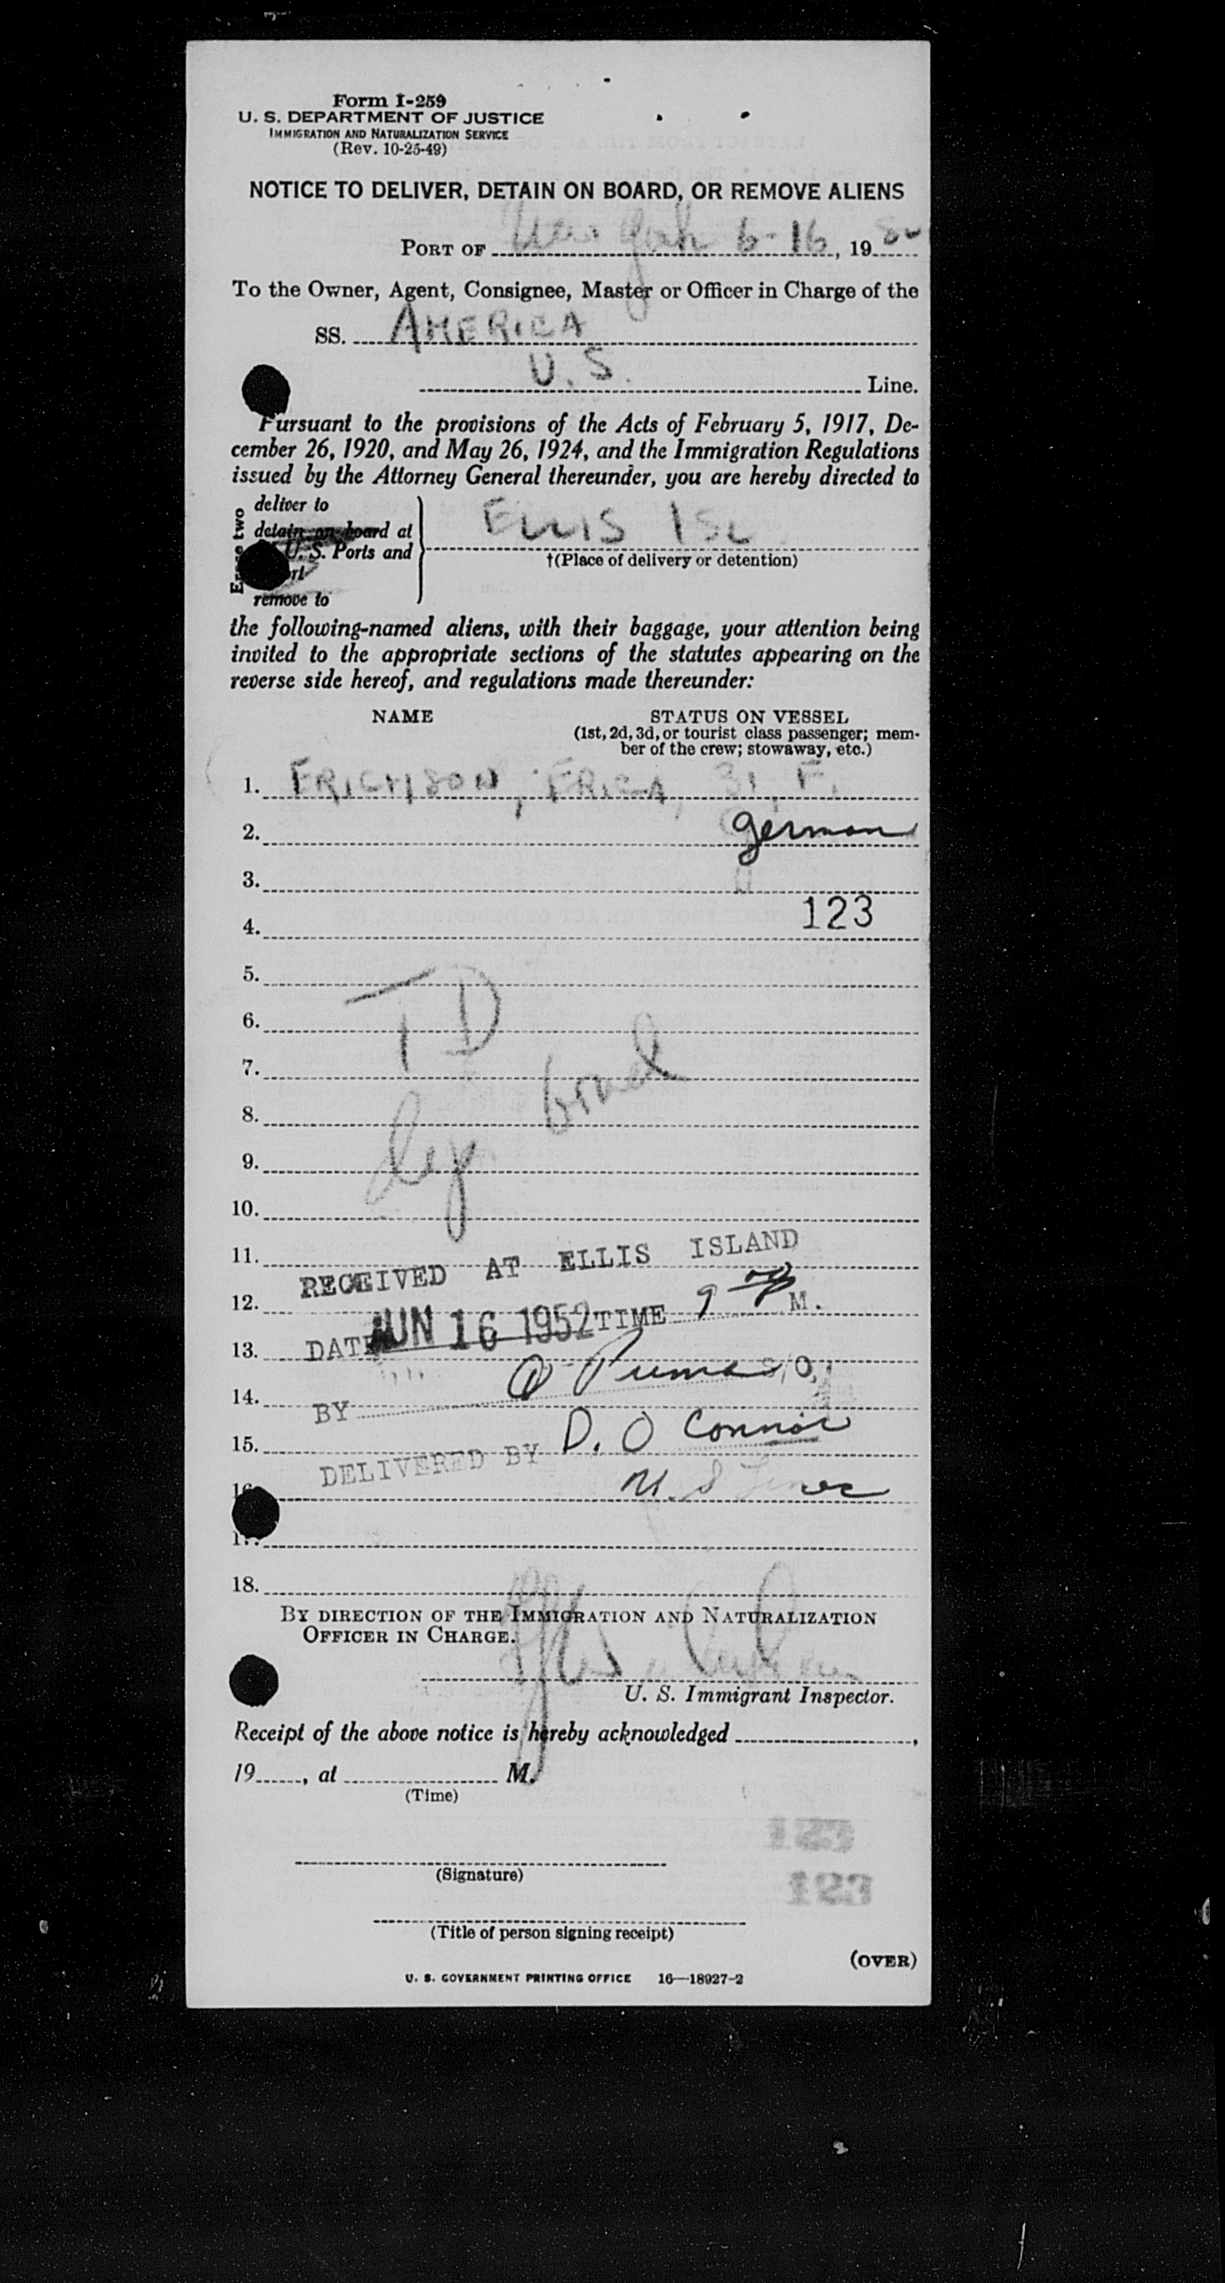 Form I-259
U. S. DEPARTMENT OF JUSTICE
IMMIGRATION AND NATURALIZATION SERVICE
(Rev. 10-25-49)
NOTICE TO DELIVER, DETAIN ON BOARD, OR REMOVE ALIENS
PORT OF New York 6-16, 19 52
To the Owner, Agent, Consignee, Master or Officer in Charge of the
SS. AMERICA
U. S. Line.
Pursuant to the provisions of the Acts of February 5, 1917, De-
cember 26, 1920, and May 26, 1924, and the Immigration Regulations
issued by the Attorney General thereunder, you are hereby directed to
deliver to
detain on board at
U. S. Ports and
remove to
ELLIS ISL
†(Place of delivery or detention)
the following-named aliens, with their baggage, your attention being
invited to the appropriate sections of the statutes appearing on the
reverse side hereof, and regulations made thereunder:
NAME STATUS ON VESSEL
(1st, 2d, 3d, or tourist class passenger; mem-
ber of the crew; stowaway, etc.)
1. ERICHSON, ERICA, 31, F.
2. German
3.
4. 123
5.
6. TD
7.
8.
9.
10.
11.
RECEIVED AT ELLIS ISLAND
12.
DATE JUN 16 1952 TIME 9 M.
13.
14.
BY
15.
DELIVERED BY D. O Connor
U. S Lines
18.
BY DIRECTION OF THE IMMIGRATION AND NATURALIZATION
OFFICER IN CHARGE.
U. S. Immigrant Inspector.
Receipt of the above notice is hereby acknowledged ,
19 , at M.
(Time)
(Signature)
(Title of person signing receipt)
(OVER)
U. S. GOVERNMENT PRINTING OFFICE 16—18927-2